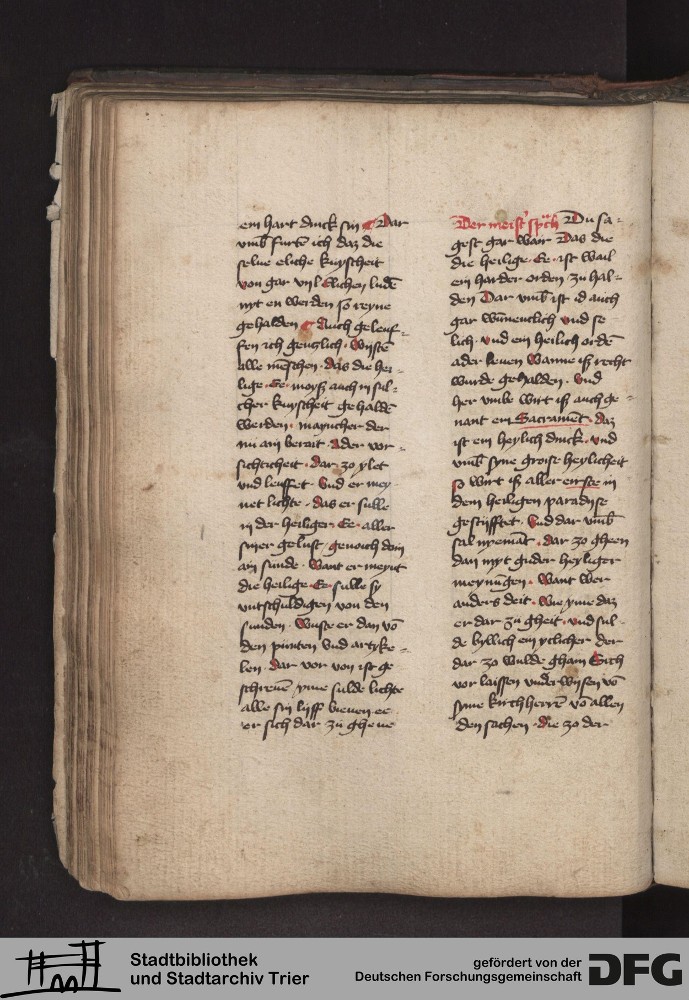 ein hart dinck sin Dar
vmb furte ich daz die
selue eliche kuyscheit
von gar vyl Elichen ludē
nyt en werden so reyne
gehalden Auch geleuf-
fen ich genslich. Wyste
alle mēschen. das die hei-
lige. Ee. moysz auch in sul-
cher kuyscheit gehaldē
werden. mancher der
nu am bereit. Ader vor-
sichticheit. dar zo ylet
vnd leuffet. Vnd er mey-
net lichte. das er sulle
in der heiliger. Ee. aller
siner gelust. genoich doin
ain sunde. Want er meynt
die heilige. Ee. sulle sy
vntschuldigen von den
sunden. Wuste er dan vō
den punten vnd artyke-
len. dar vor von ist ge
schreuē yme sulde lichte
alle sin lyff beuen. ee
er sich dar zu gheue
Der meist' sp'ch Du sa-
gest gar wair Das die
die heilige. Ee. ist wail
ein harder orden zu hal-
den Dar vmb ist id auch
gar wūnenclich vnd se-
lich. vnd ein heilich ordē
ader leuen Wanne isz recht
wurde gehalden. Vnd
her vmbe wirt isz auch ge-
nant ein Sacramēt. daz
ist ein heylich dinck. vnd
vmb syne groise heylicheit
so wirt isz aller eirste in
dem heiligen paradyse
gestyfftet. Vnd dar vmb
sal nyemāt. dar zo gheen
dan myt guder heyliger
meynūgen. Want wer
anders deit. Wie yme daz
er dar zu gheit. vnd sul-
de byllich ein yclicher der
dar zo wulde ghain Sich
vor laissen vnderwysen vō
syme kirchherrē vō allen
den sachen. die zo der
Stadtbibliothek
und Stadtarchiv Trier
gefördert von der
Deutschen Forschungsgemeinschaft
DFG